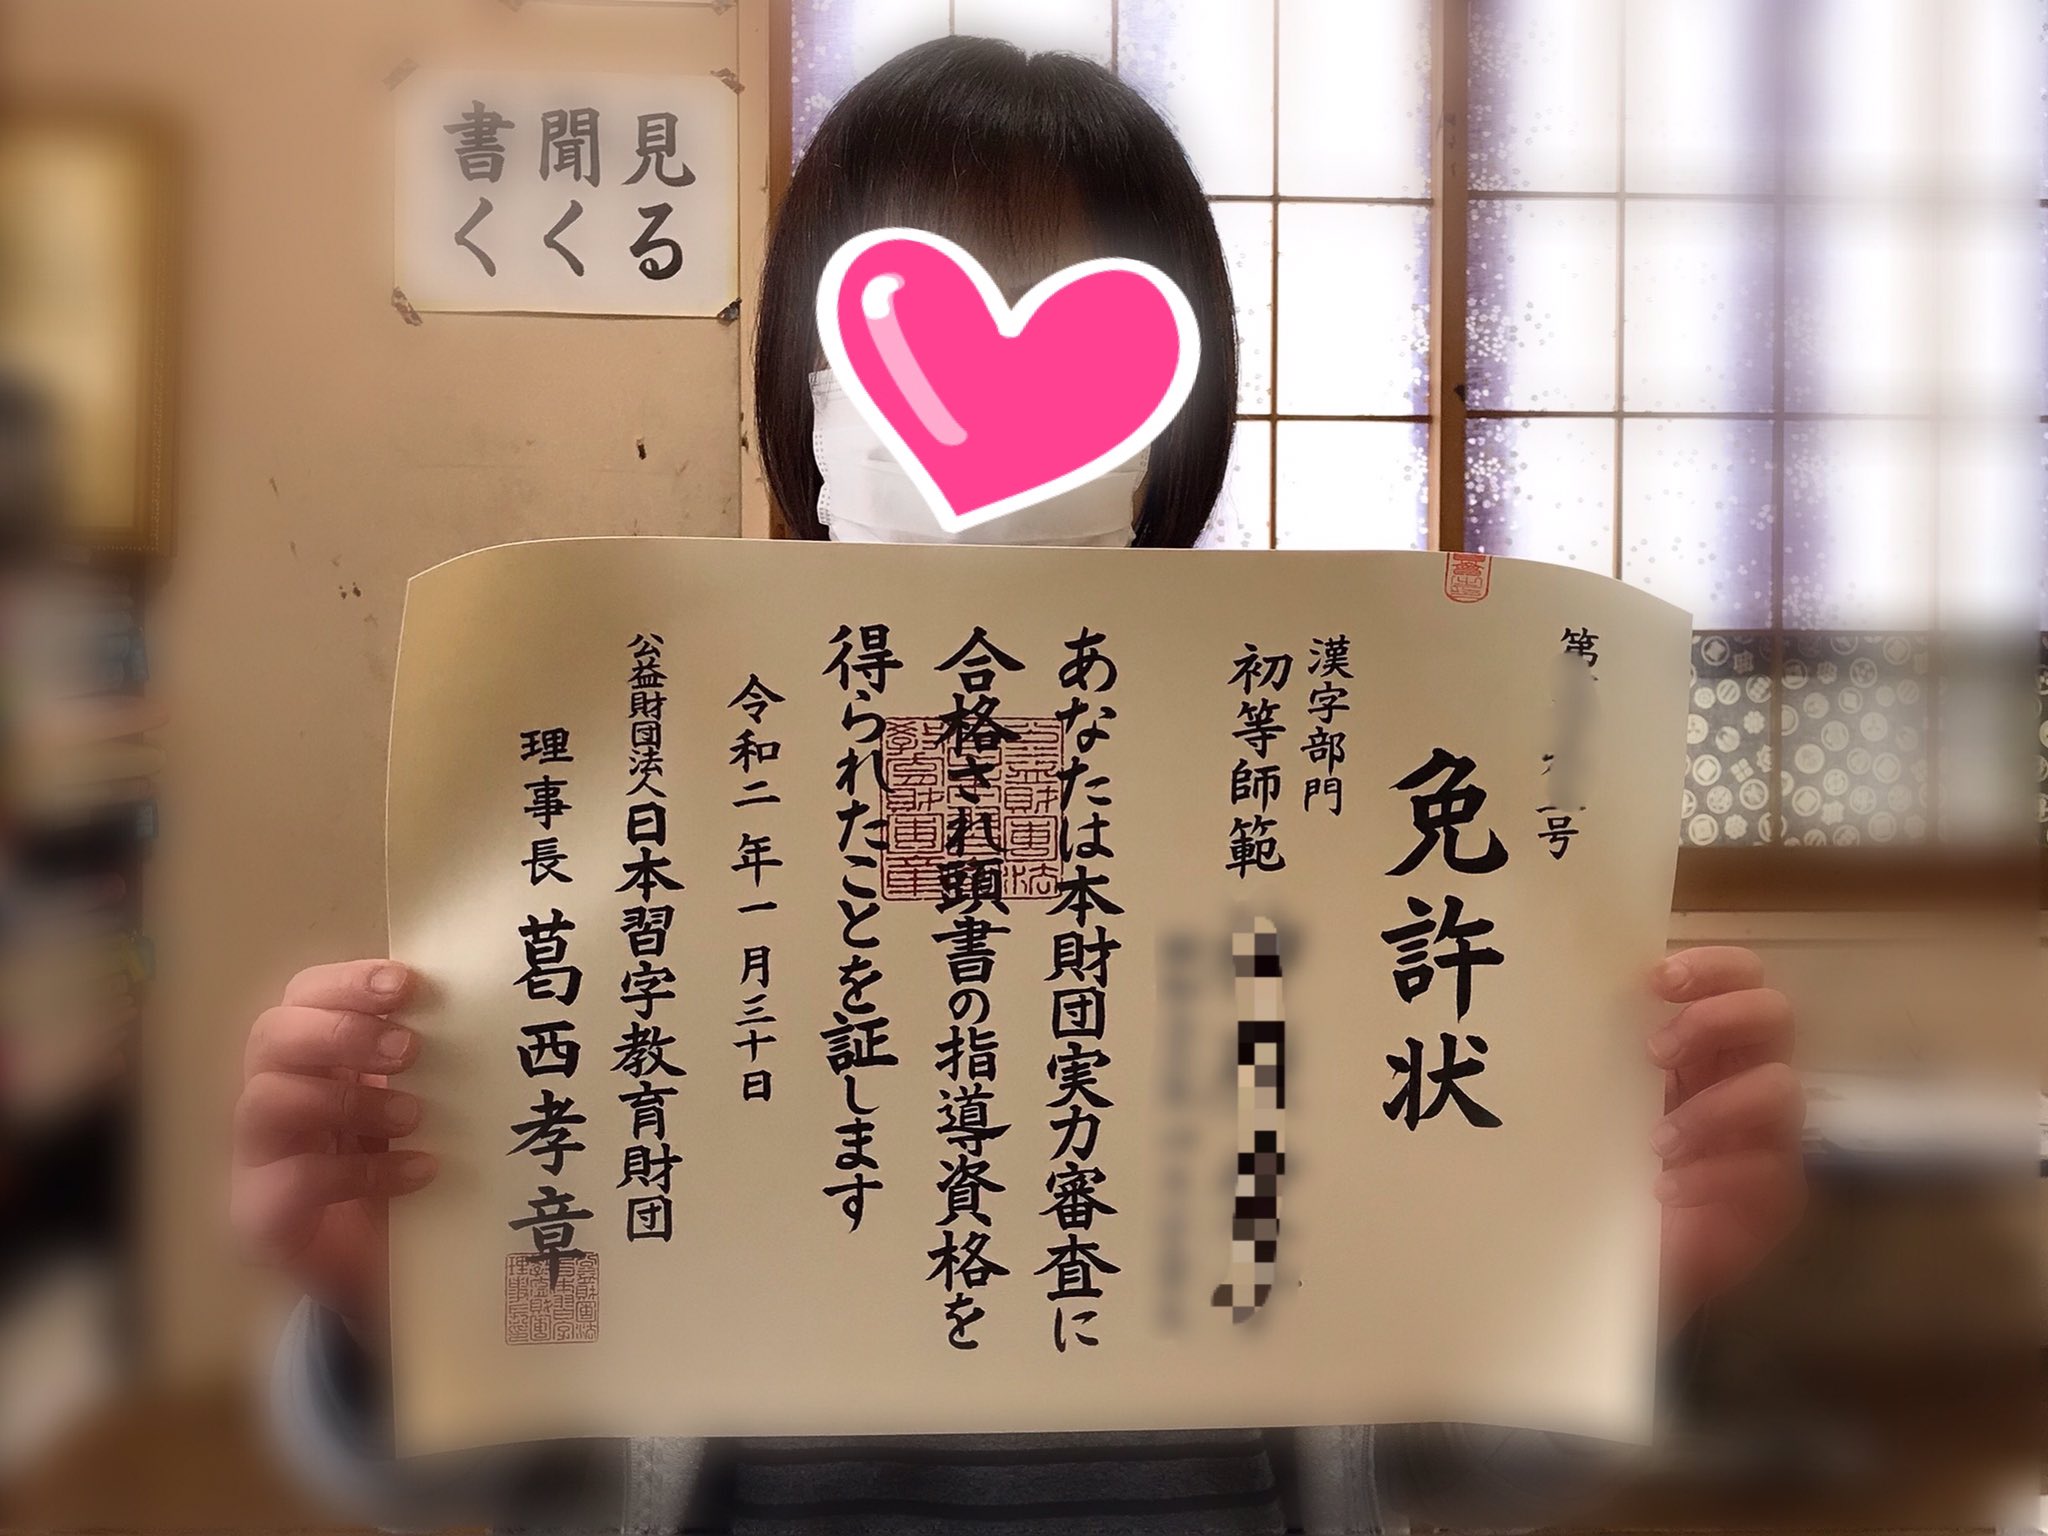 見る
聞く
書く
第
号
免許状
漢字部門
初等師範
あなたは本財団実力審査に
合格され頭書の指導資格を
得られたことを証します
令和二年一月三十日
公益財団法人日本習字教育財団
理事長 葛西孝章